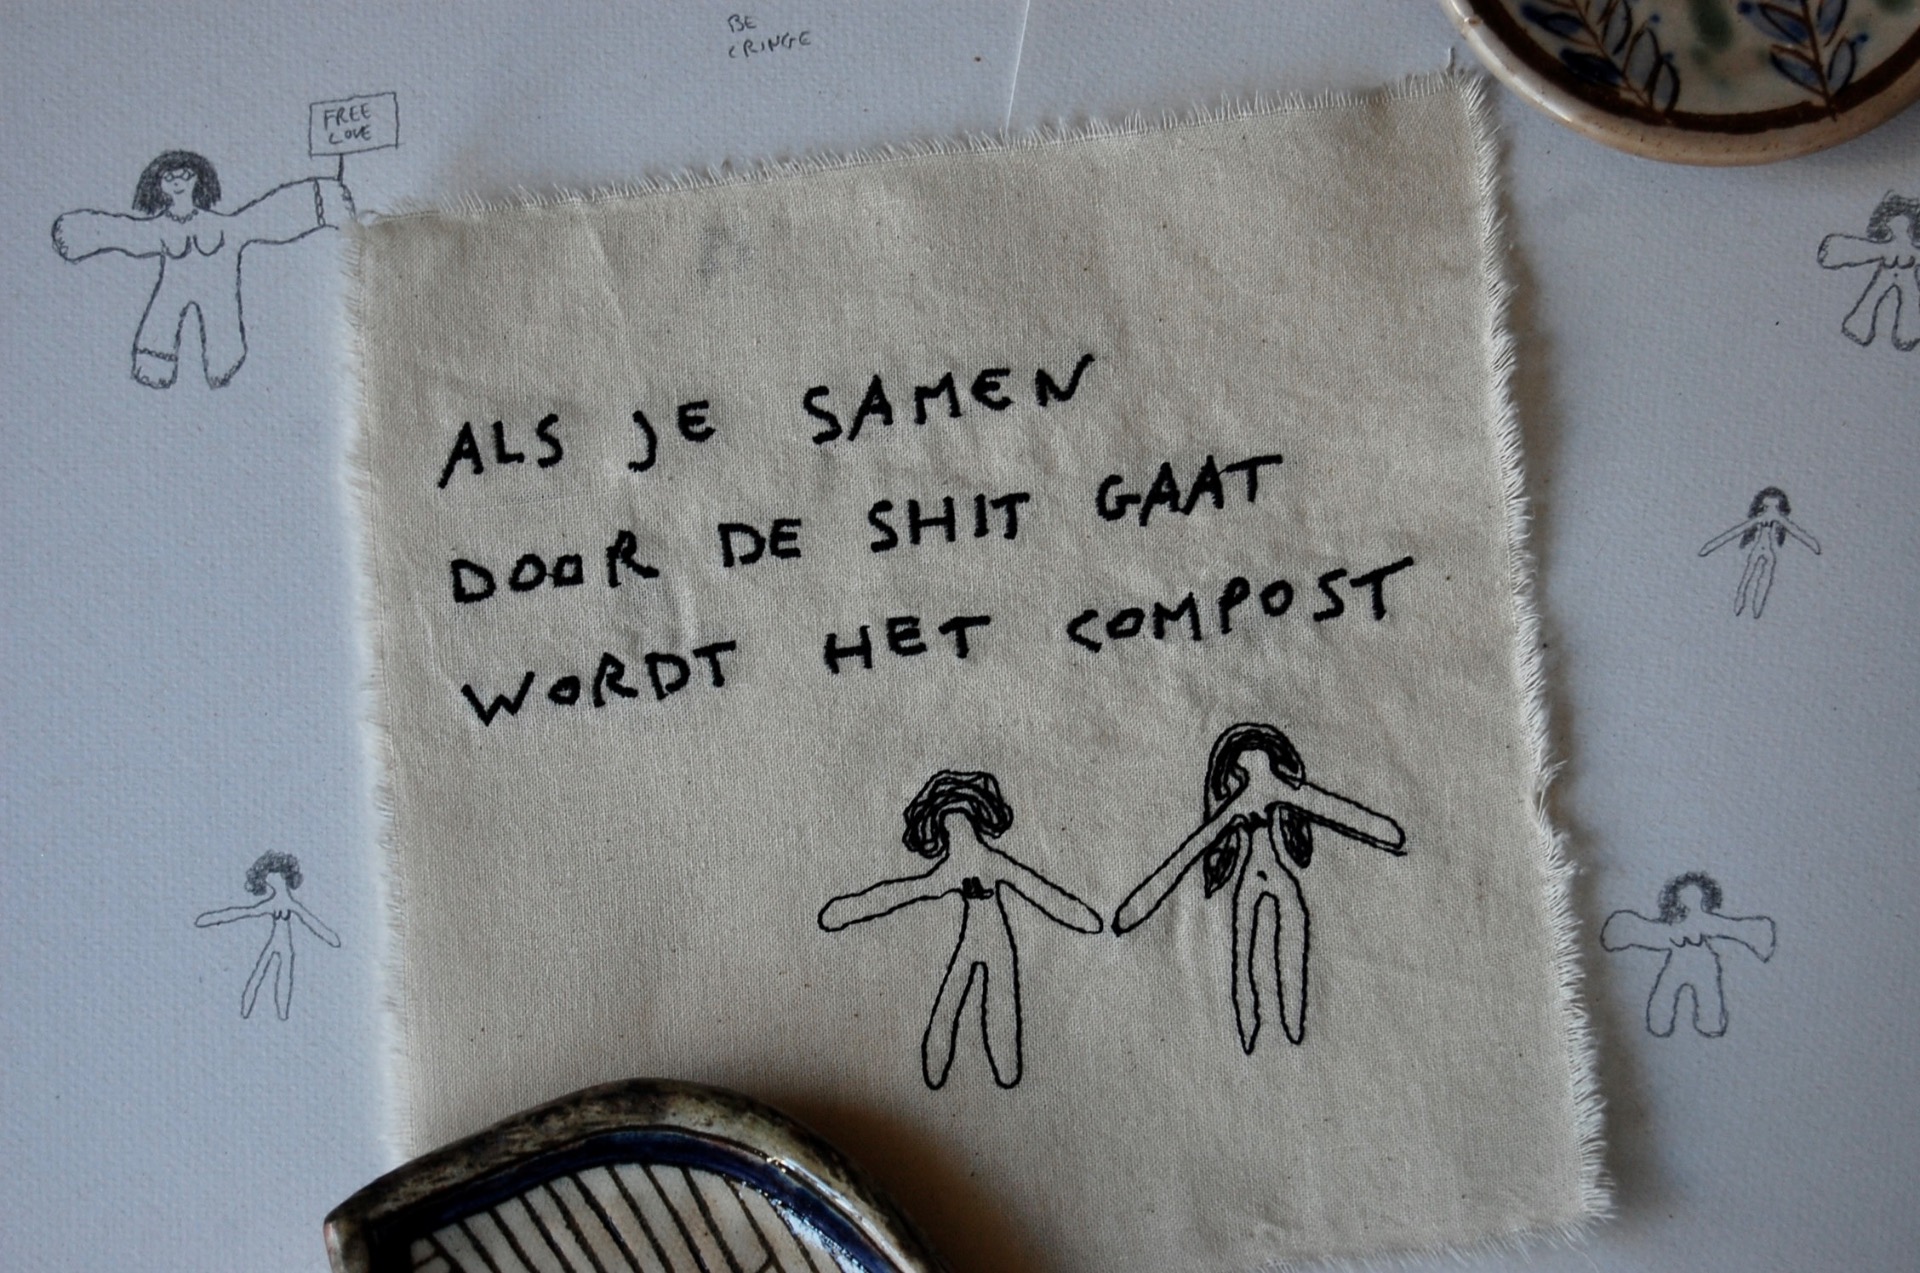 BE
CRINGE
FREE
LOVE
ALS JE SAMEN
DOOR DE SHIT GAAT
WORDT HET COMPOST